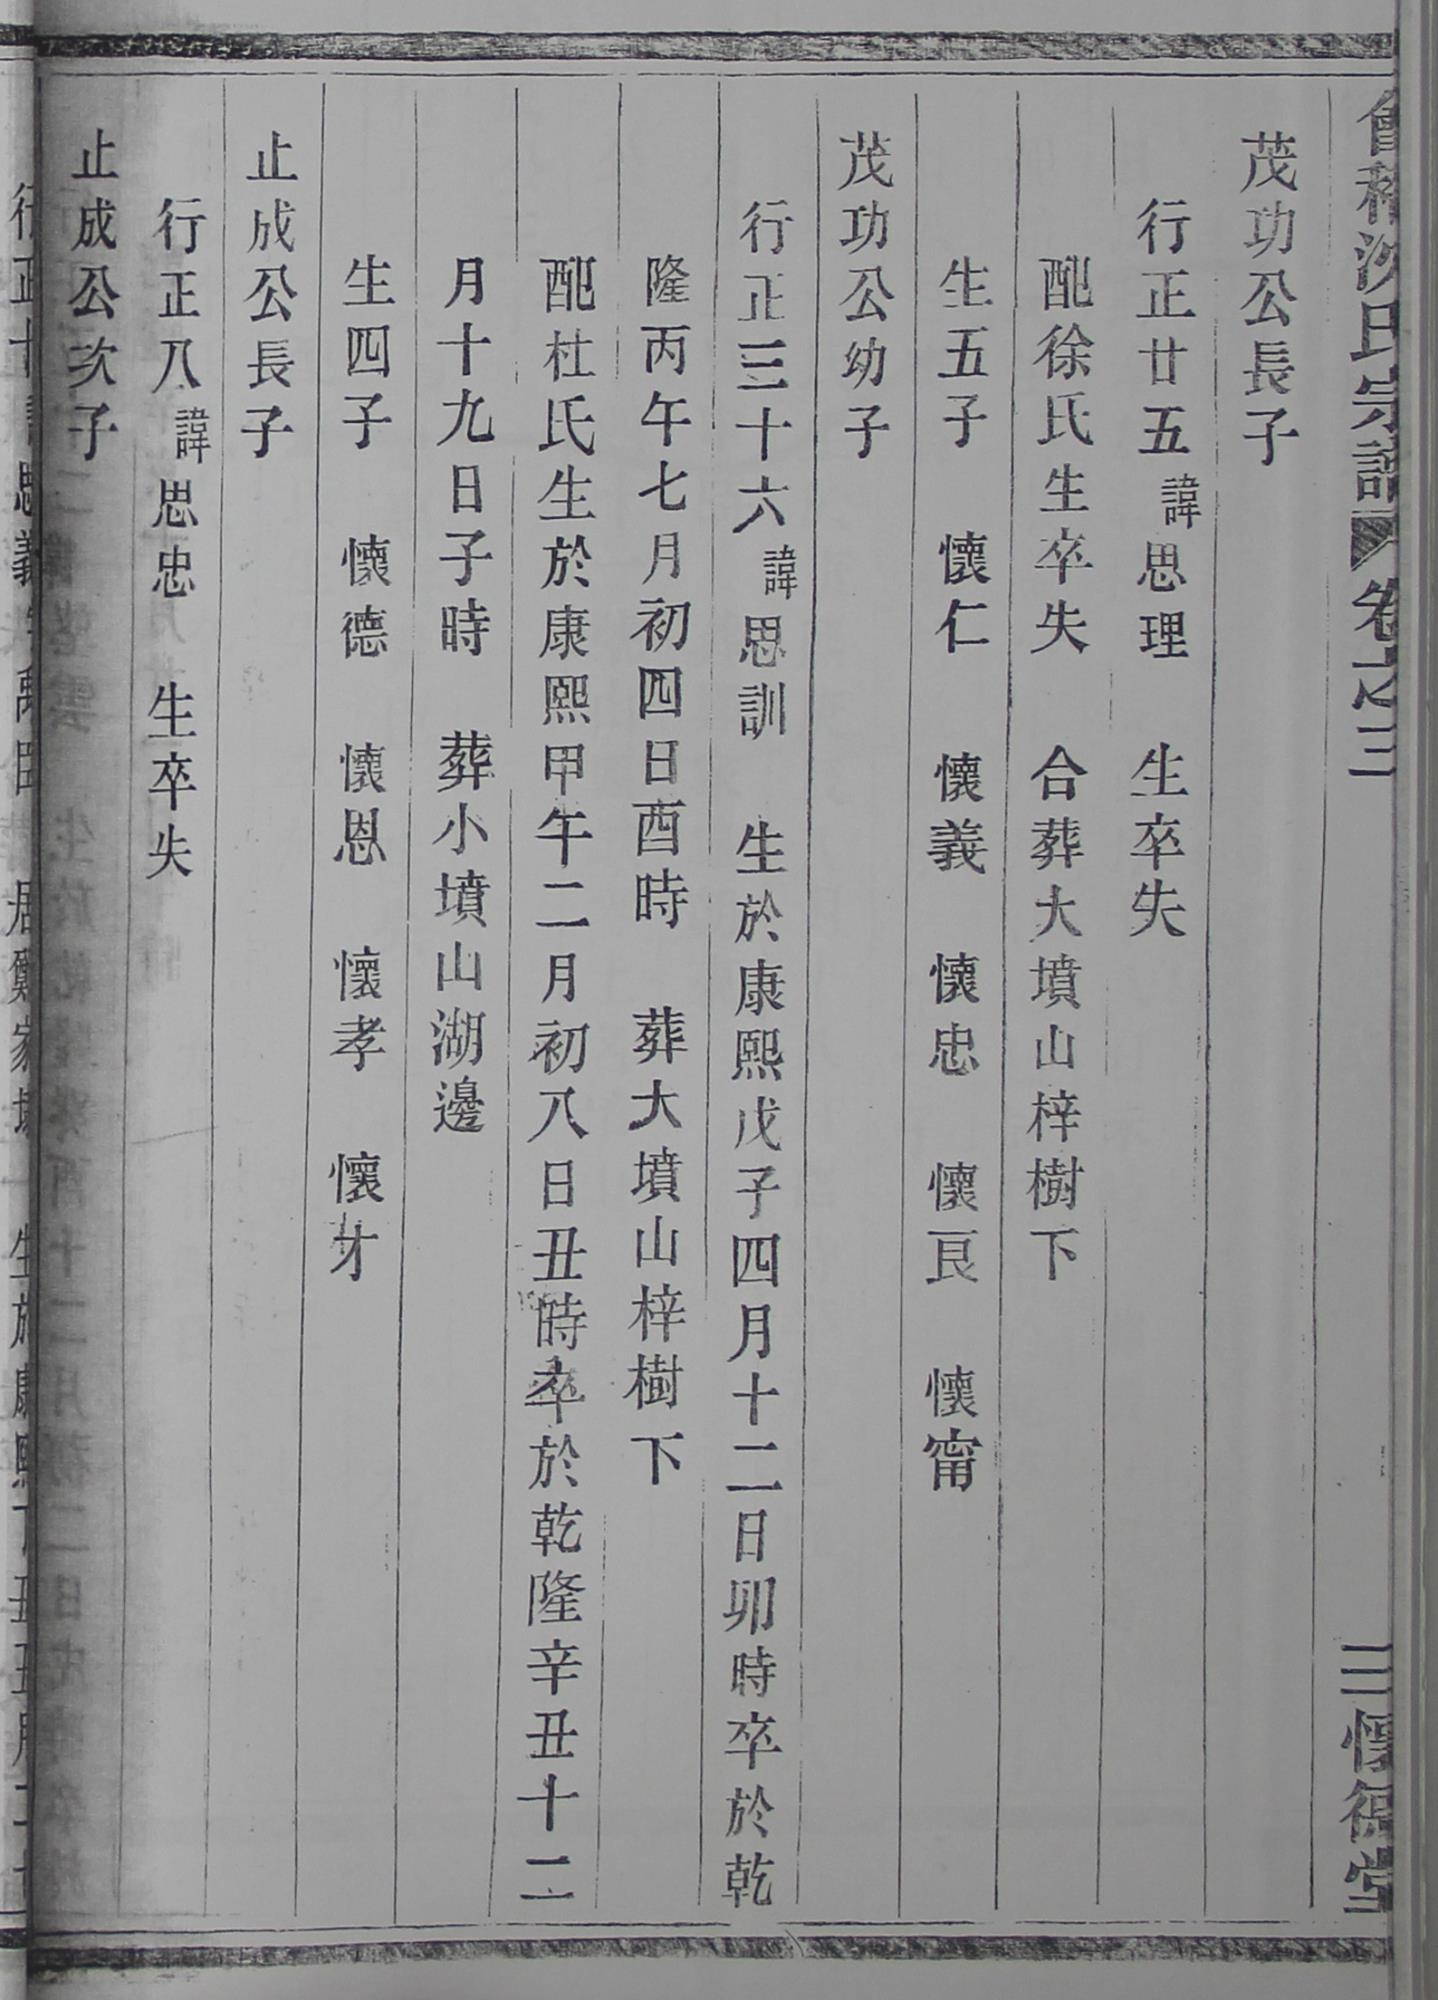 會稽沈氏宗譜 卷之三 三 懷德堂
茂功公長子
行正廿五諱思理 生卒失
配徐氏生卒失 合葬大墳山梓樹下
生五子 懷仁 懷義 懷忠 懷良 懷甯
茂功公幼子
行正三十六諱思訓 生於康熙戊子四月十二日卯時卒於乾
隆丙午七月初四日酉時 葬大墳山梓樹下
配杜氏生於康熙甲午二月初八日丑時卒於乾隆辛丑十二
月十九日子時 葬小墳山湖邊
生四子 懷德 懷恩 懷孝 懷才
止成公長子
行正八諱思忠 生卒失
止成公次子